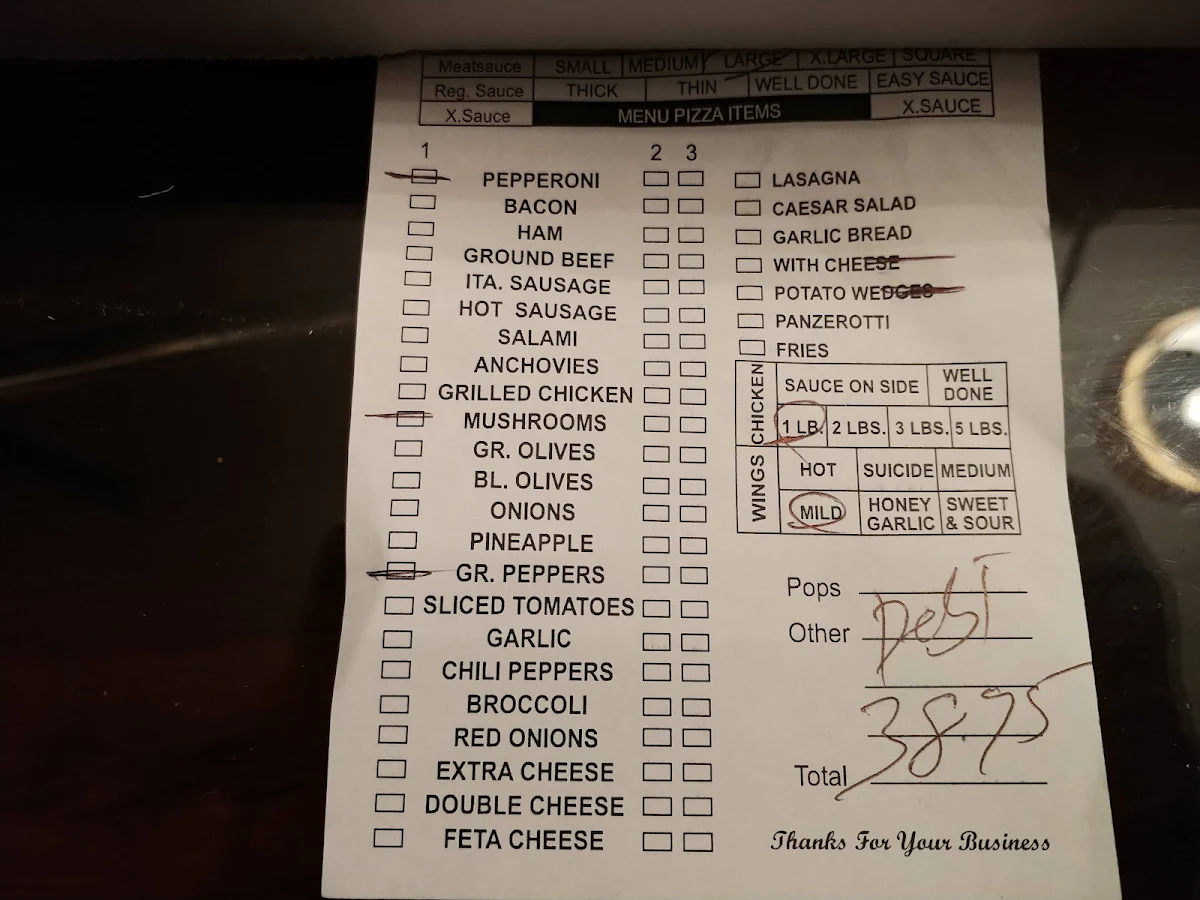 Meatsauce SMALL MEDIUM LARGE X.LARGE SQUARE
Reg. Sauce THICK THIN WELL DONE EASY SAUCE
X.Sauce MENU PIZZA ITEMS X.SAUCE
1 2 3
PEPPERONI
BACON
HAM
GROUND BEEF
ITA. SAUSAGE
HOT SAUSAGE
SALAMI
ANCHOVIES
GRILLED CHICKEN
MUSHROOMS
GR. OLIVES
BL. OLIVES
ONIONS
PINEAPPLE
GR. PEPPERS
SLICED TOMATOES
GARLIC
CHILI PEPPERS
BROCCOLI
RED ONIONS
EXTRA CHEESE
DOUBLE CHEESE
FETA CHEESE
LASAGNA
CAESAR SALAD
GARLIC BREAD
WITH CHEESE
POTATO WEDGES
PANZEROTTI
FRIES
CHICKEN WINGS
SAUCE ON SIDE WELL DONE
1 LB. 2 LBS. 3 LBS. 5 LBS.
HOT SUICIDE MEDIUM
MILD HONEY GARLIC SWEET & SOUR
Pops
Other
38.95
Total
Thanks For Your Business